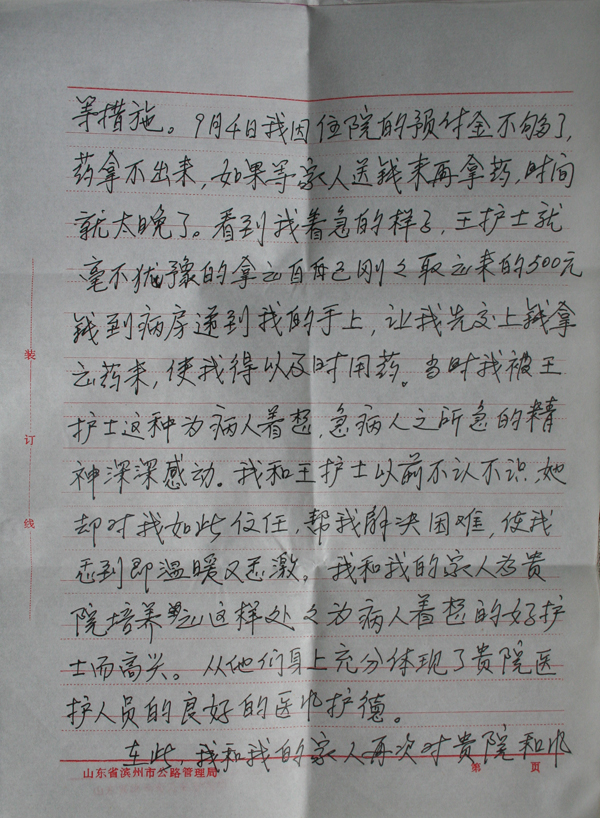 等措施。9月4日我因住院的预付金不够了,
药拿不出来,如果等家人送钱来再拿药,时间
就太晚了。看到我着急的样子,王护士就
毫不犹豫的拿出自己刚之取出来的500元
钱到病房递到我的手上,让我先交上钱拿
出药来,使我得以及时用药。当时我被王
护士这种为病人着想,急病人之所急的精
神深深感动。我和王护士以前不认不识,她
却对我如此信任,帮我解决困难,使我
感到即温暖又感激。我和我的家人为贵
院培养出这样处之为病人着想的好护
士而高兴。从他们身上充分体现了贵院医
护人员的良好的医师护德。
在此,我和我的家人再次对贵院和
装
订
线
山东省滨州市公路管理局
第 页